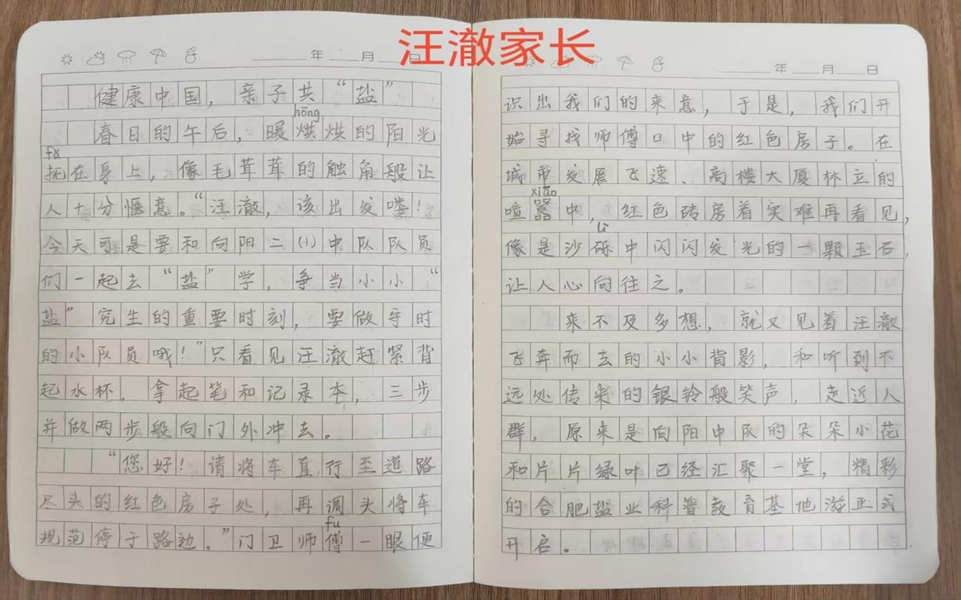 汪澈家长
年 月 日
健康中国，亲子共“盐”
hōng
春日的午后，暖烘烘的阳光
fǔ
抚在身上，像毛茸茸的触角般让
人十分惬意。“汪澈，该出发喽！
今天可是要和向阳二⑴中队队员
们一起去“盐”学，争当小小“
盐”究生的重要时刻，要做守时
的小队员哦！”只看见汪澈赶紧背
起水杯，拿起笔和记录本，三步
并做两步般向门外冲去。
“您好！请将车直行至道路
尽头的红色房子处，再调头将车
fu
规范停于路边。”门卫师傅一眼便
年 月 日
识出我们的来意，于是，我们开
始寻找师傅口中的红色房子。在
城市发展飞速、高楼大厦林立的
xiāo
喧嚣中，红色砖房着实难再看见，
lì
像是沙砾中闪闪发光的一颗玉石，
让人心向往之。
来不及多想，就又见着汪澈
飞奔而去的小小背影，和听到不
远处传来的银铃般笑声，走近人
群，原来是向阳中队的朵朵小花
和片片绿叶已经汇聚一堂，精彩
的合肥盐业科普教育基地游正式
开启。